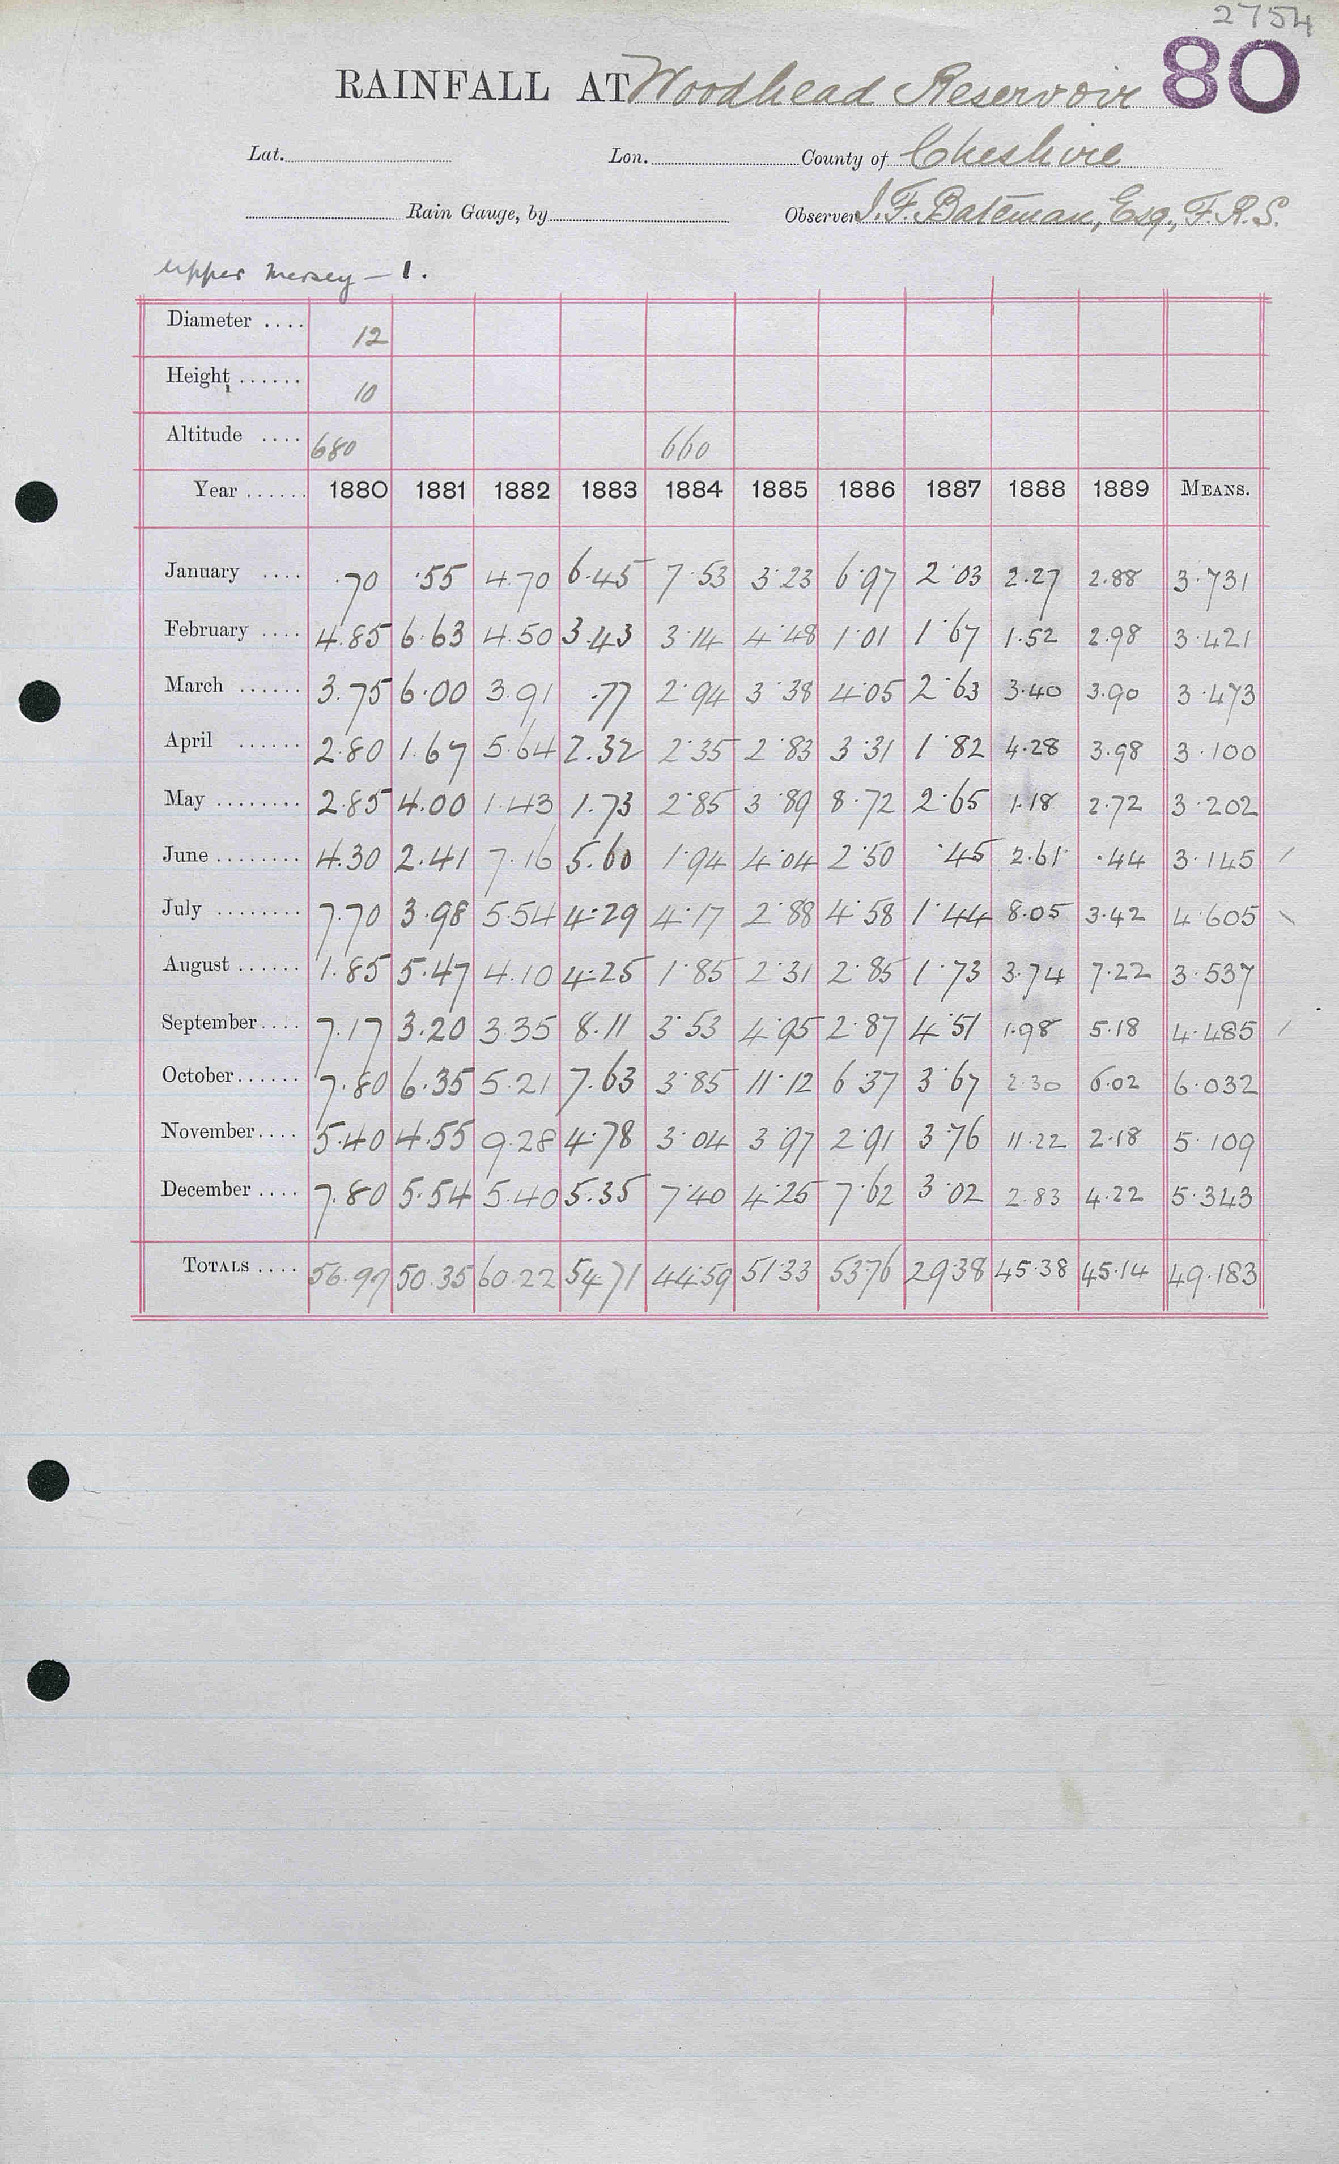 2754
RAINFALL AT Woodhead Reservoir 80
Lat. Lon. County of Cheshire
Rain Gauge, by Observer J. F. Bateman, Esq., F.R.S.
Upper Mersey - 1.
Diameter .... 12
Height ...... 10
Altitude .... 680 660
Year ...... 1880 1881 1882 1883 1884 1885 1886 1887 1888 1889 MEANS.
January .... .70 .55 4.70 6.45 7.53 3.23 6.97 2.03 2.27 2.88 3.731
February .... 4.85 6.63 4.50 3.43 3.14 4.48 1.01 1.67 1.52 2.98 3.421
March ...... 3.75 6.00 3.91 .77 2.94 3.38 4.05 2.63 3.40 3.90 3.473
April ...... 2.80 1.67 5.64 2.32 2.35 2.83 3.31 1.82 4.28 3.98 3.100
May ........ 2.85 4.00 1.43 1.73 2.85 3.89 8.72 2.65 1.18 2.72 3.202
June ........ 4.30 2.41 7.16 5.60 1.94 4.04 2.50 .45 2.61 .44 3.145 /
July ........ 7.70 3.98 5.54 4.29 4.17 2.88 4.58 1.44 8.05 3.42 4.605 \
August ...... 1.85 5.47 4.10 4.25 1.85 2.31 2.85 1.73 3.74 7.22 3.537
September.... 7.17 3.20 3.35 8.11 3.53 4.95 2.87 4.51 1.98 5.18 4.485 /
October...... 7.80 6.35 5.21 7.63 3.85 11.12 6.37 3.67 2.30 6.02 6.032
November.... 5.40 4.55 9.28 4.78 3.04 3.97 2.91 3.76 11.22 2.18 5.109
December .... 7.80 5.54 5.40 5.35 7.40 4.25 7.62 3.02 2.83 4.22 5.343
TOTALS .... 56.97 50.35 60.22 54.71 44.59 51.33 53.76 29.38 45.38 45.14 49.183